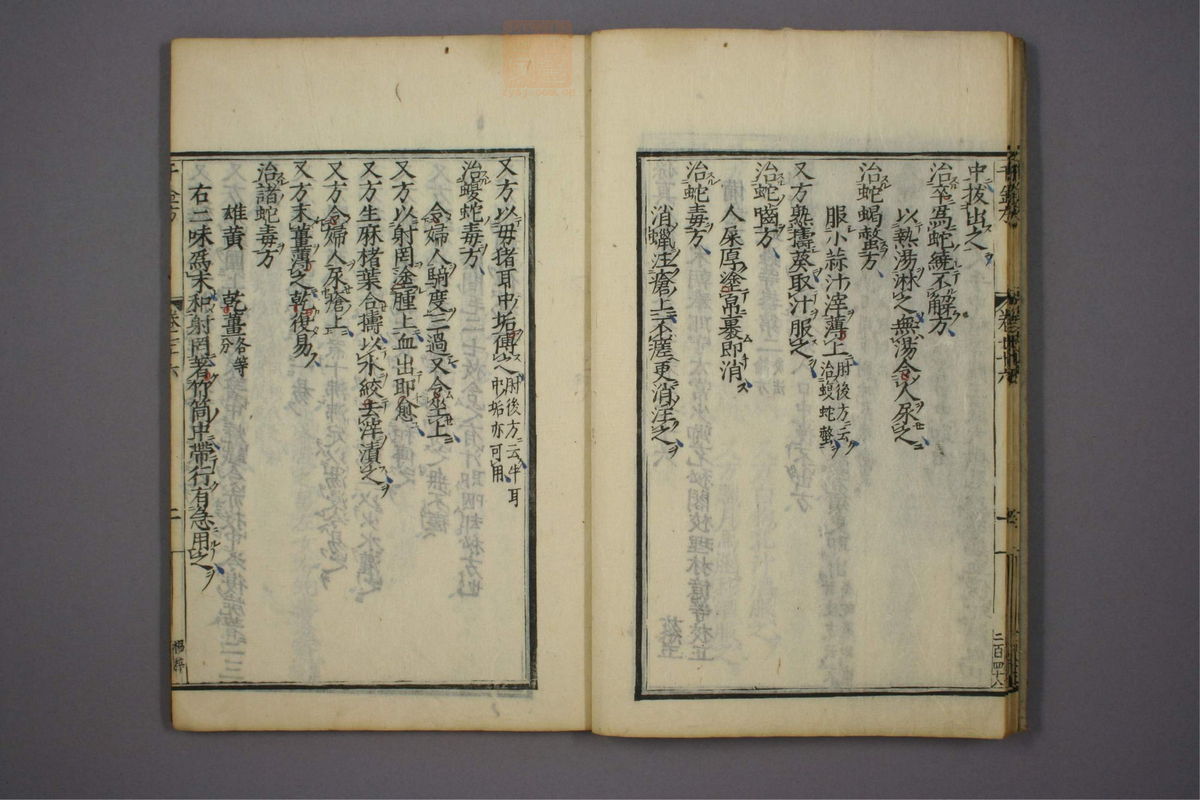 中拔出之
治卒爲蛇繞不解方
以熱湯淋之無湯令人尿之
治蛇蝎螫方
服小蒜汁滓薄上肘後方云治蝮蛇螫
又方熟擣葵取汁服之
治蛇嚙方
人屎厚塗帛裹即消
治蛇毒方
消蠟注瘡上不瘥更消注之
二百四十八
又方以母猪耳中垢傅之肘後方云牛耳中垢亦可用
治蝮蛇毒方
令婦人騎度三過又令坐上
又方以射罔塗腫上血出即愈
又方生麻楮葉合擣以水絞去滓漬之
又方令婦人尿瘡上
又方末薑薄之乾復易
治諸蛇毒方
雄黃 乾薑各等分
右二味爲末和射罔著竹筒中帶行有急用之